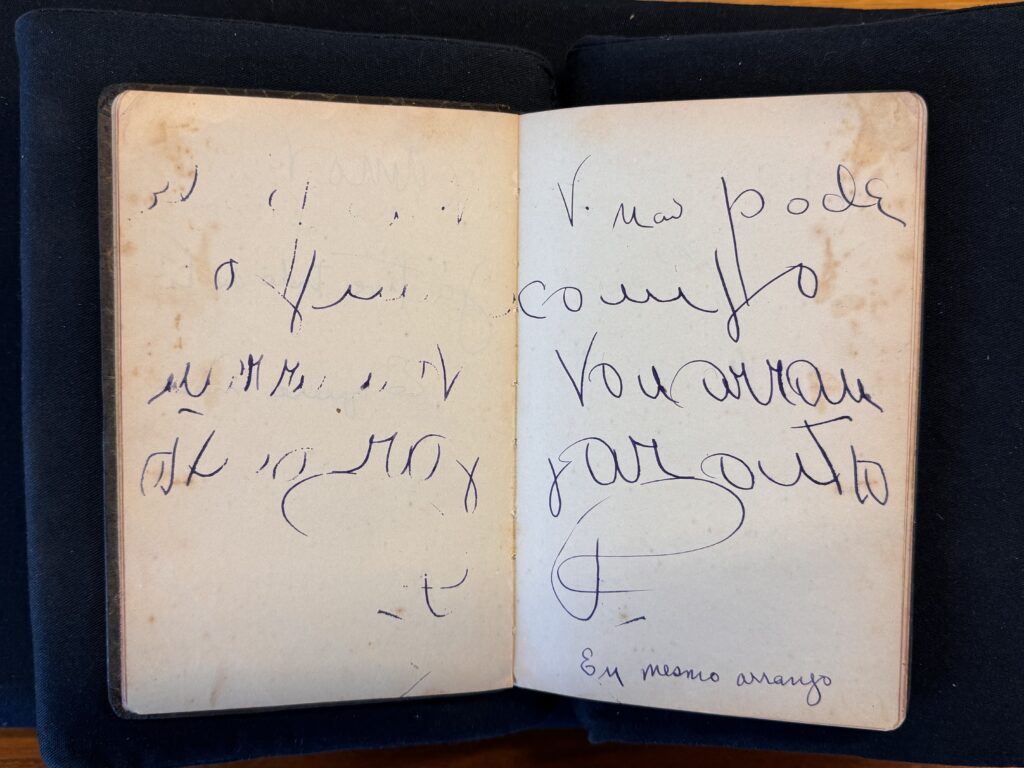 V. não pode
comigo
Vou arran
jar outro
P
Eu mesmo arranjo